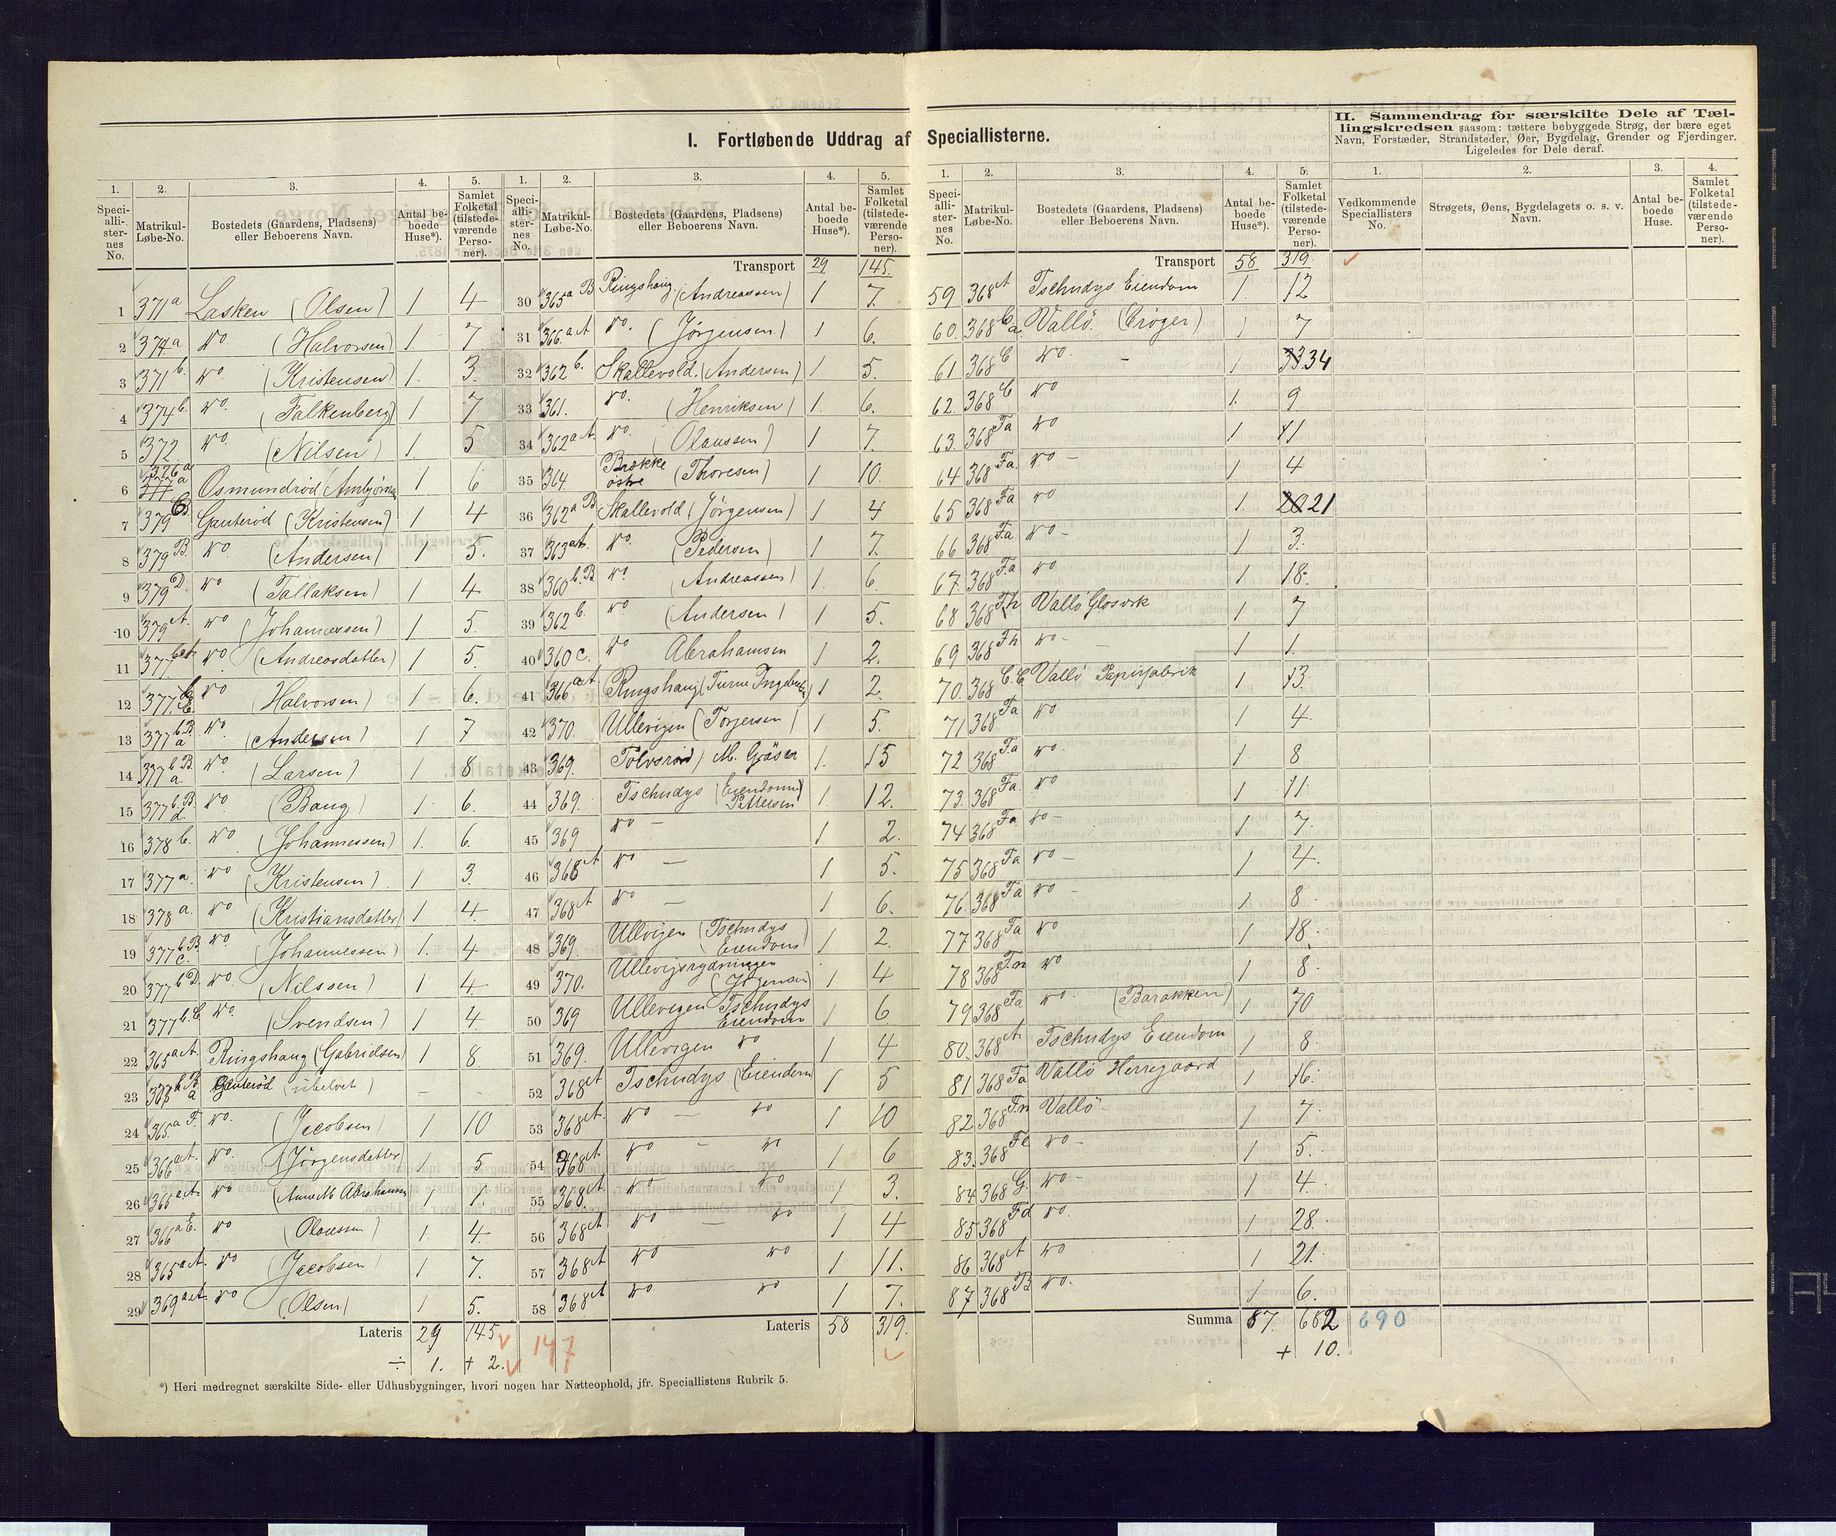 I. Fortløbende Uddrag af Speciallisterne.
II. Sammendrag for særskilte Dele af Tællingskredsen saasom: tættere bebyggede Strøg, der bære eget Navn, Forstæder, Strandsteder, Øer, Bygdelag, Grender og Fjerdinger. Ligeledes for Dele deraf.
1. 2. 3. 4. 5.
Speciallisternes No. Matrikul-Løbe-No. Bostedets (Gaardens, Pladsens) eller Beboerens Navn. Antal beboede Huse*). Samlet Folketal (tilstedeværende Personer).
1 371a Lasken (Olsen) 1 4
2 374a do (Halvorsen) 1 7
3 371b. do. (Kristensen) 1. 3.
4 374b. do. (Falkenberg) 1 7
5 372. do. (Nilsen) 1. 5
6 376a Osmundrød 1 6
7 379 Gauterød (Kristensen) 1 4
8 379B. do. (Andersen) 1 5.
9 379D. do (Tallaksen) 1 4
10 379A. do (Johannessen) 1 5.
11 377 do. (Andreasdatter) 1 5.
12 377 do (Halvorsen) 1 6.
13 377bBa do. (Andersen) 1 7
14 377bBa. do. (Larsen) 1 8
15 377bBd do (Bang) 1 6.
16 378b. do. (Johannessen) 1. 6.
17 377a. do (Kristensen) 1 3.
18 378a. do (Kristiansdatter) 1 4.
19 377bBc. do. (Johannessen) 1. 4
20 377bD. do. (Nilssen) 1 4.
21 377b.C do. (Svendsen) 1 4.
22 365aA. Ringshaug (Gabrielsen) 1 8
23 Gauterød (ubebvet) - -
24 365aF. do. (Jacobsen) 1 10
25 366aA. do. (Jörgensdatter) 1 5
26 365aA. do (Anne M. Abrahamsen 1 1.
27 366aE. do (Olaussen) 1. 4.
28 365aA. do (Jacobsen) 1 7.
29 369aA. do (Olsen) 1 5.
Lateris 29 145
÷ 1. + 2. 147
*) Heri medregnet særskilte Side- eller Udhusbygninger, hvori nogen har Natteophold, jfr. Speciallistens Rubrik 5.
1. 2. 3. 4. 5.
Speciallisternes No. Matrikul-Løbe-No. Bostedets (Gaardens, Pladsens) eller Beboerens Navn. Antal beboede Huse*). Samlet Folketal (tilstedeværende Personer).
Transport 29 145.
30 365aB Ringshaug (Andreassen) 1 7.
31 366.aA do. (Jörgensen) 1 6.
32 362b. Skallevold. (Andersen) 1 5.
33 361. do. (Henriksen) 1. 6.
34 362aA. do. (Olaussen) 1 7.
35 364. Brække østre (Thoresen) 1 10.
36 362aB Skallevold (Jørgensen) 1 4
37 363aA. do. (Pedersen) 1 7.
38 360b.B do. (Andreassen) 1. 6.
39 362b. do (Andersen) 1 5.
40 360c. do Abrahamsen 1 2.
41 366aA Ringshaug 1 2.
42 370. Ullevigen (Torjersen) 1 5.
43 369. Tolvsrød) M. Gråsen 1. 15
44 369. Tschudys (Eiendom) Pettersen 1. 12.
45 369 do - 1 2.
46 368A do - 1 5.
47 368A do - 1 6.
48 369. Ullvigen (Tschudys Eiendom) 1 2.
49 370. Ullevigsrydningen (Jørgensen) 1 4
50 369 Ullevigen Tschudys Eiendom 1 6
51 369. Ullevigen do 1 4
52 368A Tschudys (Eiendom) 1 5
53 368A. do - do 1 10
54 368A. do - do 1 6
55 368A. do do 1 3.
56 368A do - do 1 4
57 368A do do 1 11.
58 368A do do 1 7.
Lateris 58 319.
1. 2. 3. 4. 5.
Speciallisternes No. Matrikul-Løbe-No. Bostedets (Gaardens, Pladsens) eller Beboerens Navn. Antal beboede Huse*). Samlet Folketal (tilstedeværende Personer).
Transport 58 319
59 368A Tschudys Eiendom 1 12
60. 368 Vallö. (Crøger) 1 7
61 368C do - 1 33 34
62. 368C do 1. 9
63. 368Fa do 1 11
64 368Fa. do - 1 4
65 368Fa do 1 20 21
66 368Fa do - 1 3.
67. 368Fa do 1 18.
68 368Fh Vallö Glasverk 1 7
69 368Fh do - 1 1.
70. 368 Vallö Papirfabrik 1 13.
71 368Fa do 1 4.
72 368Fa do. 1 8
73. 368Fa. do 1 11.
74 368Fa. do - 1 7.
75 368Fa do - 1 4.
76. 368Fa do - 1 8.
77 368Fa do 1 18.
78 368Fm do 1 8.
79. 368Fa do. (Barakken) 1 70
80. 368A Tschudys Eiendom 1 8.
81 368Fa Vallö Herregaard 1 16.
82. 368Fm Vallö 1 7.
83. 368Fe do - 1 5.
84 368G. do - 1 4.
85 368Fd do. 1 28.
86 368A do 1 21.
87 368B do. 1 6.
Summa 87. 682 690
+ 10.
1. 2. 3. 4.
Vedkommende Speciallisters No. Strøgets, Øens, Bygdelagets o. s. v. Navn. Antal beboede Huse. Samlet Folketal (tilstedeværende Personer).